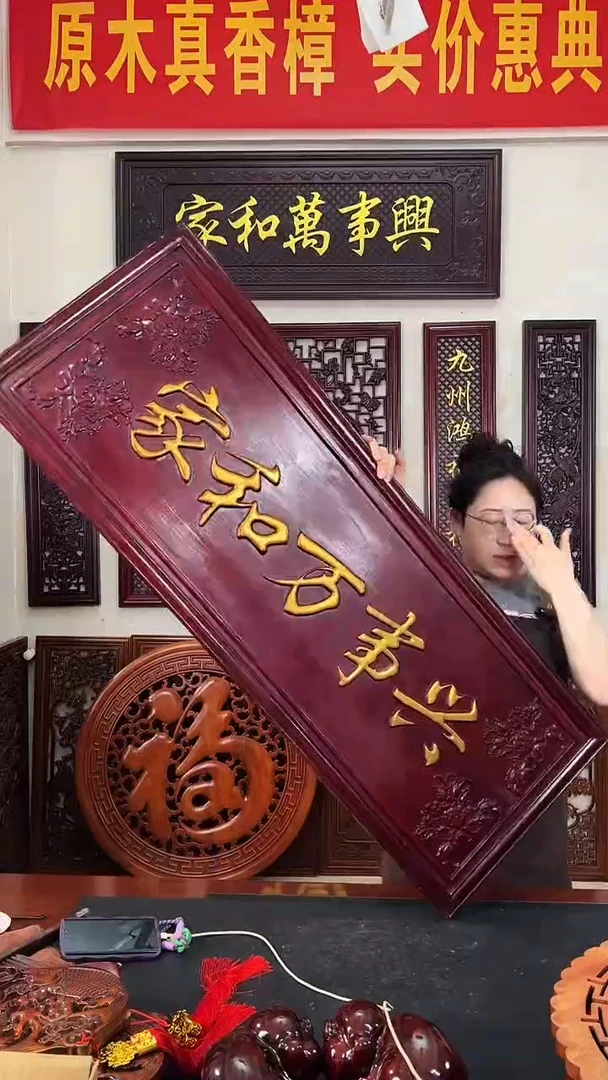 原木真香樟 实价惠典
家和萬事興
九州鸿
家和万事兴
福